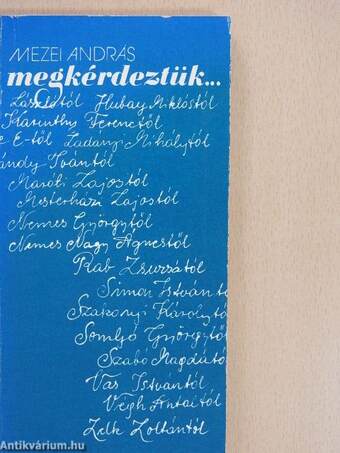 MEZEI ANDRÁS
megkérdeztük...
Lászlótól Hubay Miklóstól
Karinthy Ferenctől
E-től Ladányi Mihálytól
ándy Ivántól
Maróti Lajostól
Mesterházi Lajostól
Nemes Györgytől
Nemes Nagy Ágnestől
Rab Zsuzsától
Simon Istvántó
Szakonyi Károlytó
Somlyó Györgytő
Szabó Magdátó
Vas Istvántól
Végh Antaltól
Zelk Zoltántól
Antikvárium.hu